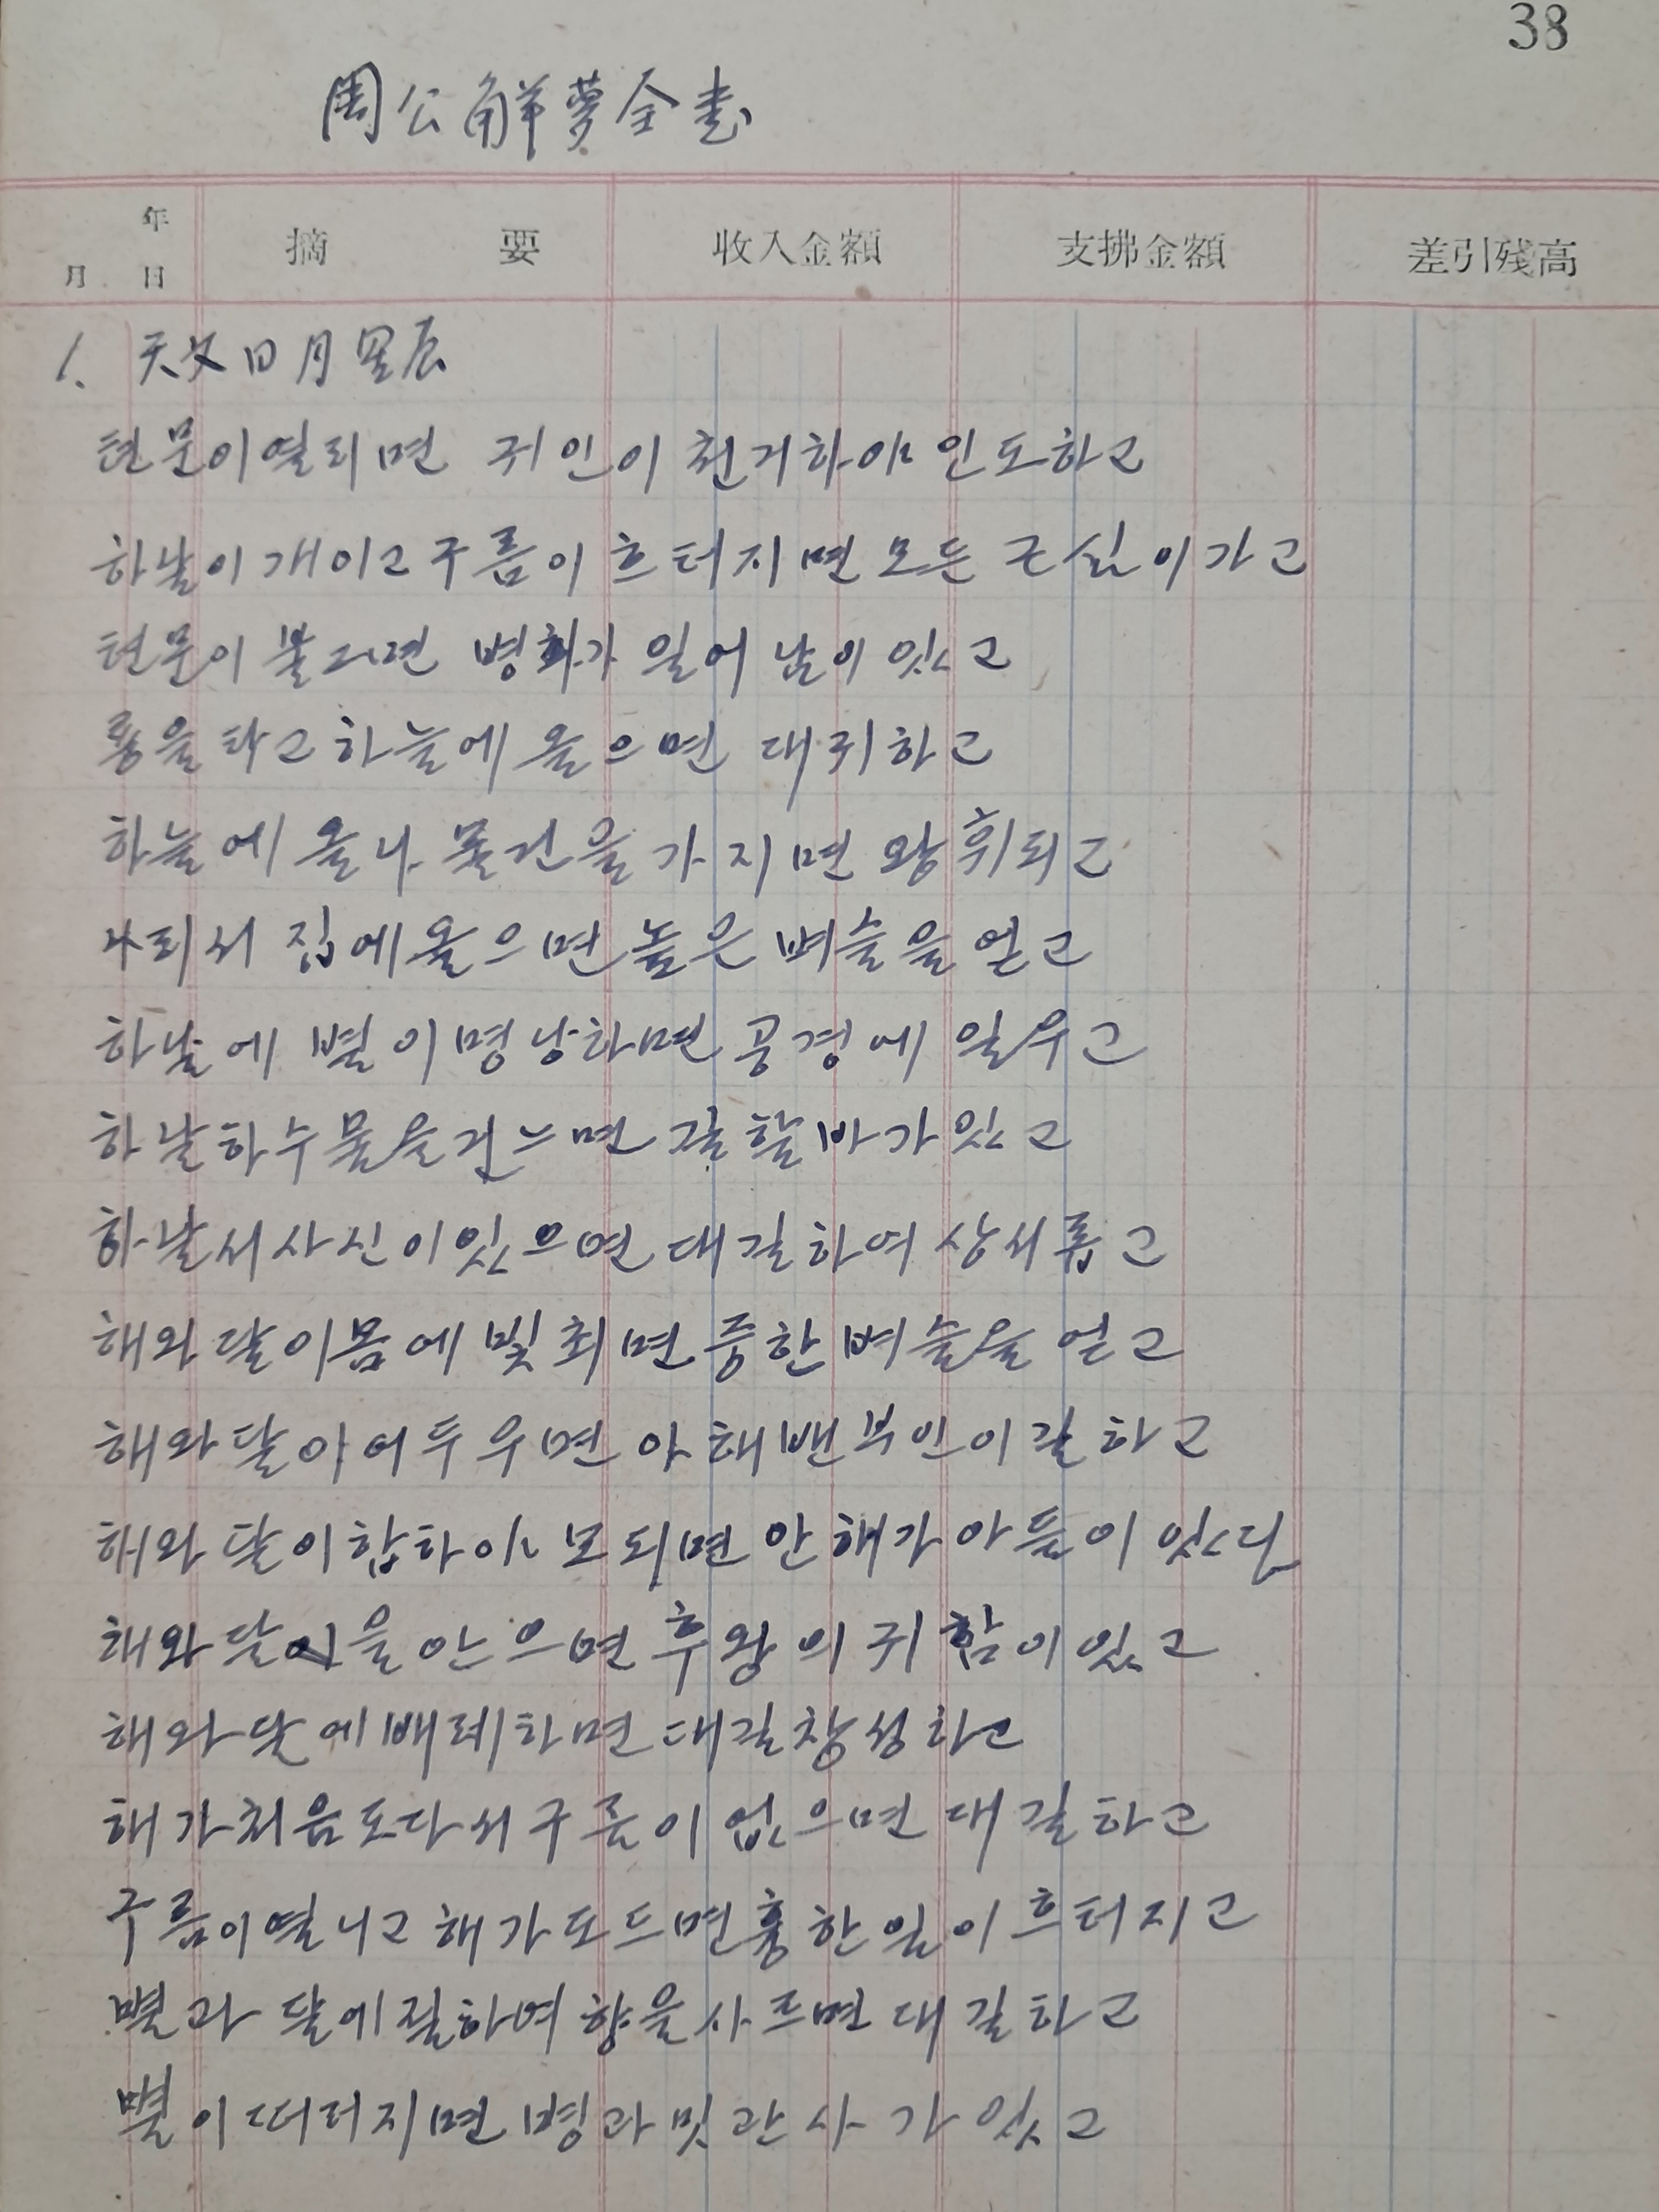 38
周公解夢全書
年
月 日 摘 要 收入金額 支拂金額 差引殘高
1. 天文日月星辰
텬문이열리면 귀인이 천거하야 인도하고
하날이개이고구름이흐터지면모든근심이가고
텬문이붉그면 병화가 일어남이있고
룡을타고하늘에올으면 대귀하고
하늘에올나 물건을가지면 왕휘되고
나리서 집에올으면높은벼슬을얻고
하날에 별이명낭하면 공경에 일우고
하날하수물을건느면 길할바가있고
하날서사신이있으면대길하여상서롭고
해와달이몸에빛최면중한벼슬을얻고
해와달아어두우면아해밴부인이길하고
해와달이합하야 모되면안해가아들이있다
해와달을안으면후왕의귀함이있고
해와달에배례하면대길창성하고
해가처음도다서구름이없으면대길하고
구름이열니고해가도드면흉한일이흐터지고
별과달에절하여향을사르면대길하고
별이떠러지면병과밋관사가있고